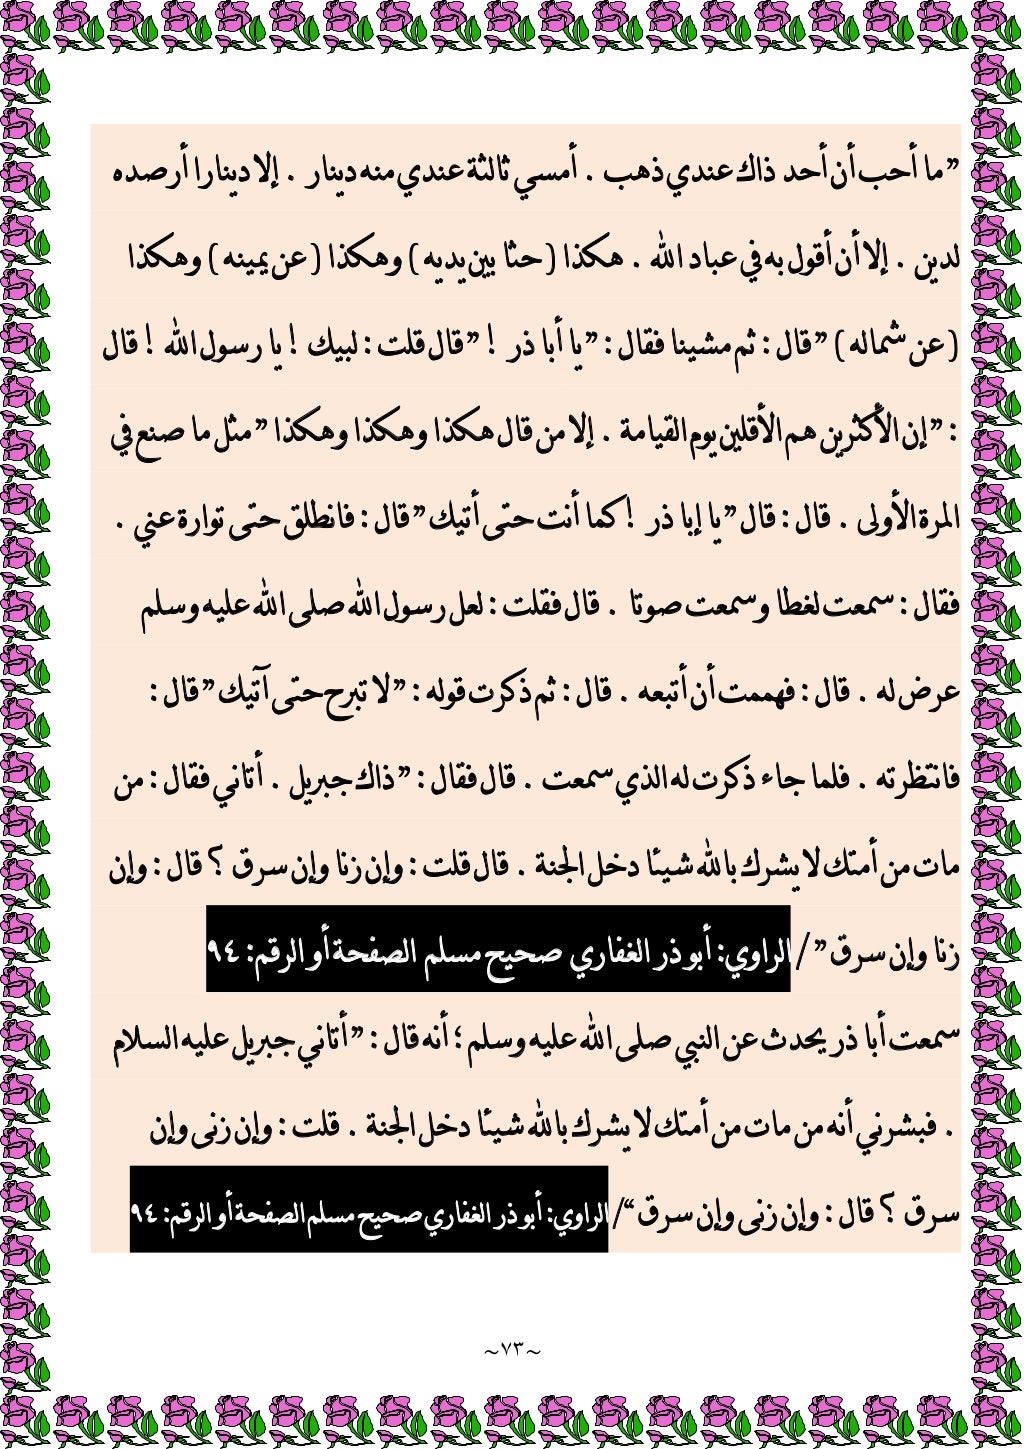 ”ما أحب أن أحد ذاك عندي ذهب . أمسي ثالثة عندي منه دينار . إلا دينارا أرصده
لدين . إلا أن أقول به في عباد الله . هكذا (حثا بين يديه) وهكذا (عن يمينه) وهكذا
(عن شماله) ”قال : ثم مشينا فقال : ”يا أبا ذر ! ”قال قلت : لبيك ! يا رسول الله ! قال
: ”إن الأكثرين هم الأقلين يوم القيامة . إلا من قال هكذا وهكذا وهكذا ”مثل ما صنع في
المرة الأولى . قال : قال ”يا إبا ذر ! كما أنت حتى أتيك ”قال : فانطلق حتى توارة عني .
فقال : سمعت لغطا وسمعت صوتا . قال فقلت : لعل رسول الله صلى الله عليه وسلم
عرض له . قال : فهممت أن أتبعه . قال : ثم ذكرت قوله : ”لا تبرح حتى آتيك ”قال :
فانتظرته . فلما جاء ذكرت له الذي سمعت . قال فقال : ”ذاك جبريل . أتاني فقال : من
مات من أمتك لا يشرك بالله شيئا دخل الجنة . قال قلت : وإن زنا وإن سرق ؟ قال : وإن
زنا وإن سرق ”/ الراوي: أبو ذر الغفاري صحيح مسلم الصفحة أو الرقم: ٩٤
سمعت أبا ذر يحدث عن النبي صلى الله عليه وسلم ؛ أنه قال : ”أتاني جبريل عليه السلام
. فبشرني أنه من مات من أمتك لا يشرك بالله شيئا دخل الجنة . قلت : وإن زنى وإن
سرق ؟ قال : وإن زنى وإن سرق “/ الراوي: أبو ذر الغفاري صحيح مسلم الصفحة أو الرقم: ٩٤
~٧٣~